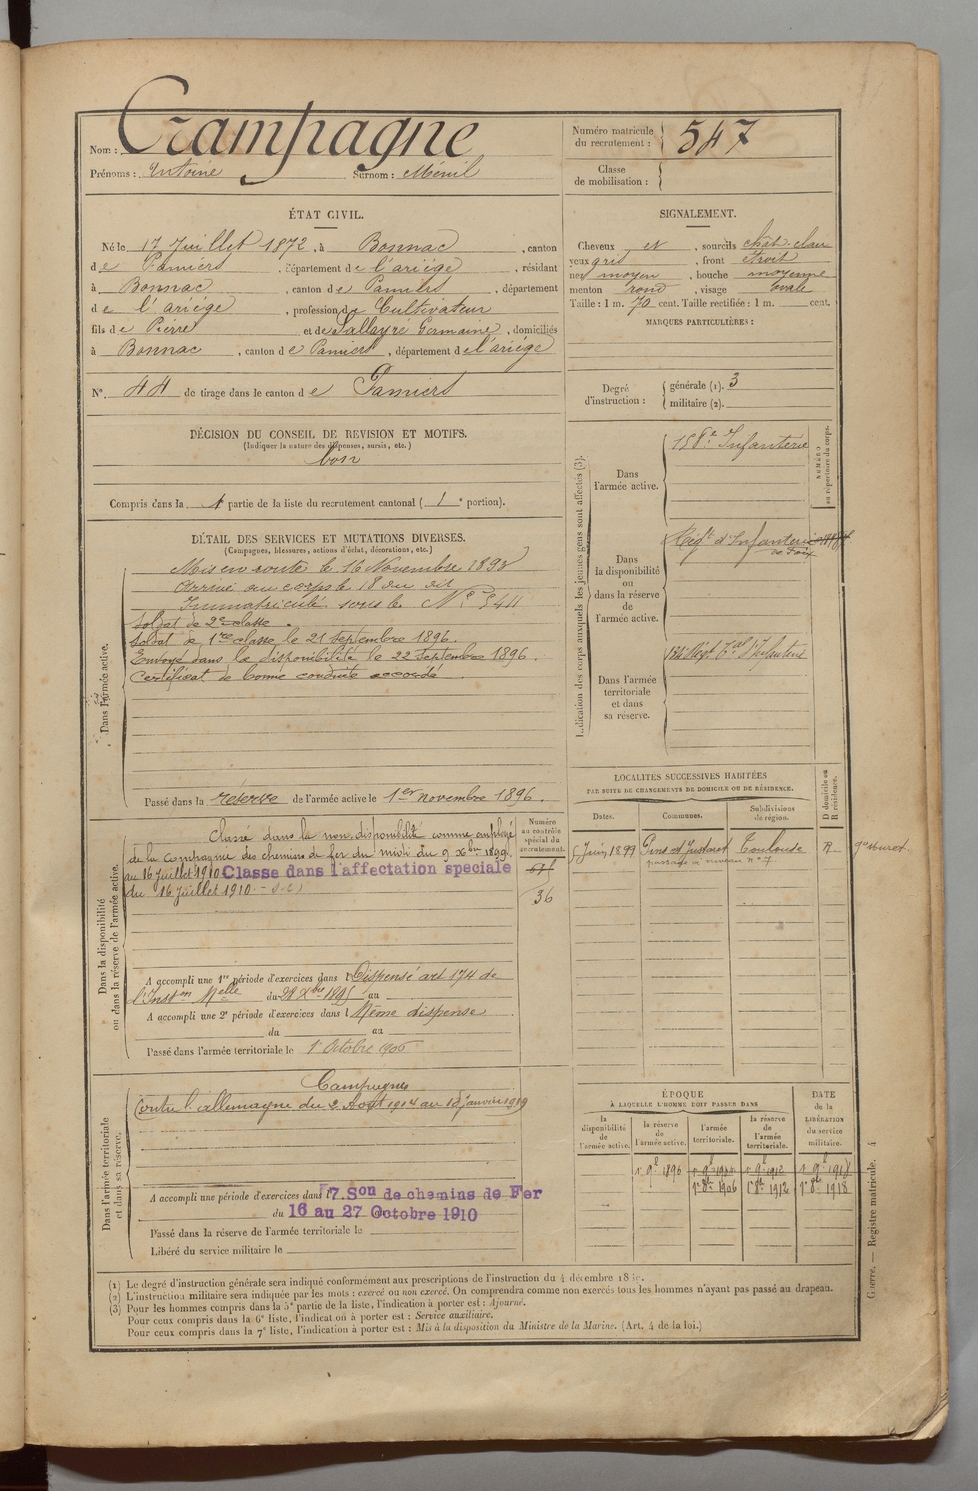 Nom : Campagne
Prénoms : Antoine Surnom : Ménil
Numéro matricule du recrutement : 547
Classe de mobilisation :
ÉTAT CIVIL.
Né le 17 Juillet 1872, à Bonnac, canton
de Pamiers, département de l'ariége, résidant
à Bonnac, canton de Pamiers, département
de l'ariége, profession de Cultivateur
fils de Pierre et de Sallayré Germaine, domiciliés
à Bonnac, canton de Pamiers, département de l'ariége
N° 44 de tirage dans le canton de Pamiers
SIGNALEMENT.
Cheveux et, sourcils chât. clair
yeux gris, front étroit
nez moyen, bouche moyenne
menton rond, visage ovale
Taille : 1 m. 70 cent. Taille rectifiée : 1 m. cent.
MARQUES PARTICULIÈRES :
Degré d'instruction : générale (1). 3
militaire (2).
DÉCISION DU CONSEIL DE REVISION ET MOTIFS.
(Indiquer la nature des dispenses, sursis, etc.)
bon
Compris dans la 1 partie de la liste du recrutement cantonal ( 1 e portion).
DÉTAIL DES SERVICES ET MUTATIONS DIVERSES.
(Campagnes, blessures, actions d'éclat, décorations, etc.)
Dans l'armée active.
Mis en route le 16 Novembre 1893
Arrivé au corps le 18 du dit
Immatriculé sous le N° 5411
Soldat de 2e classe.
Soldat de 1re classe le 21 septembre 1896.
Envoyé dans la disponibilité le 22 septembre 1896.
Certificat de bonne conduite accordé.
Passé dans la réserve de l'armée active le 1er novembre 1896.
Indication des corps auxquels les jeunes gens sont affectés (3).
NUMÉRO au répertoire du corps.
Dans l'armée active.
158e Infanterie
Dans la disponibilité ou dans la réserve de l'armée active.
Régt d'Infanterie
de Foix
Dans l'armée territoriale et dans sa réserve.
134 Régt Tal d'Infanterie
Dans la disponibilité ou dans la réserve de l'armée active.
Numéro au contrôle spécial du recrutement.
36
Classé dans la non disponibilité comme employé
de la compagnie des chemins de fer du midi du 9 Xbre 1899
au 16 Juillet 1910 Classé dans l'affectation spéciale
du 16 Juillet 1910
A accompli une 1re période d'exercices dans l Dispensé art 174 de
l'Inston Melle du 28 Xbre 1895 au
A accompli une 2e période d'exercices dans l Même dispense
du au
Passé dans l'armée territoriale le 1 Octobre 1906
LOCALITÉS SUCCESSIVES HABITÉES
PAR SUITE DE CHANGEMENTS DE DOMICILE OU DE RÉSIDENCE.
Dates. Communes. Subdivisions de région. D domicile ou R résidence.
5 Juin 1899 Pins et Justaret Toulouse R
passage à niveau n° 7
Dans l'armée territoriale et dans sa réserve.
Campagnes
Contre l'allemagne du 2 Août 1914 au 18 janvier 1919
A accompli une période d'exercices dans l 7. Son de chemins de Fer
du 16 au 27 Octobre 1910
Passé dans la réserve de l'armée territoriale le
Libéré du service militaire le
ÉPOQUE
À LAQUELLE L'HOMME DOIT PASSER DANS
la disponibilité de l'armée active. la réserve de l'armée active. l'armée territoriale. la réserve de l'armée territoriale.
DATE de la LIBÉRATION du service militaire.
1r 9b 1896 1r 9b 1912 1r 9b 1918
1r 8b 1906 1r 8b 1912 1r 8b 1918
(1) Le degré d'instruction générale sera indiqué conformément aux prescriptions de l'instruction du 4 décembre
(2) L'instruction militaire sera indiquée par les mots : exercé ou non exercé. On comprendra comme non exercés tous les hommes n'ayant pas passé au drapeau.
(3) Pour les hommes compris dans la 5e partie de la liste, l'indication à porter est : Ajourné.
Pour ceux compris dans la 6e liste, l'indication à porter est : Service auxiliaire.
Pour ceux compris dans la 7e liste, l'indication à porter est : Mis à la disposition du Ministre de la Marine. (Art. 4 de la loi.)
Guerre. — Registre matricule. 4